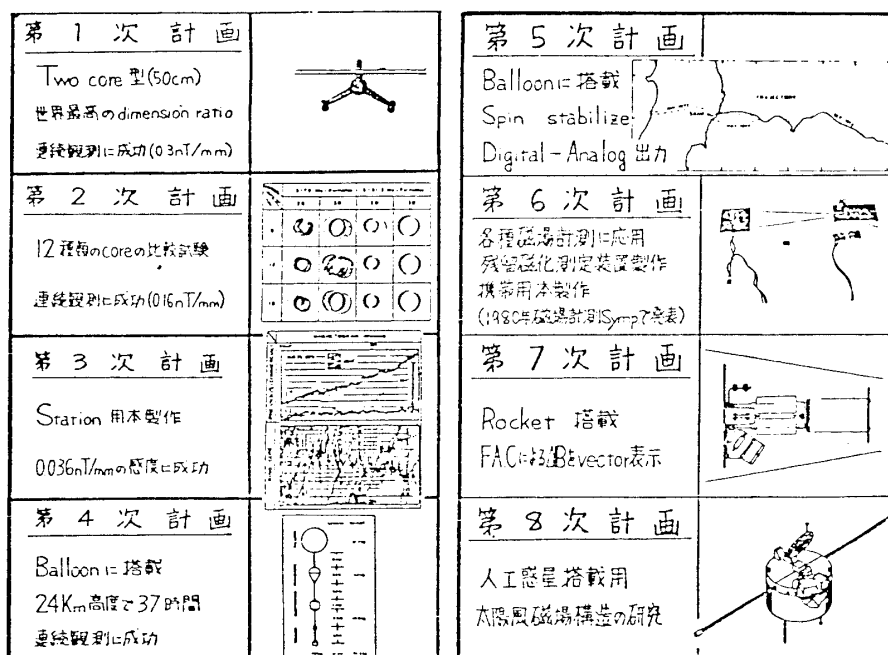 第 1 次 計 画
Two core 型(50cm)
世界最高のdimension ratio
連続観測に成功(0.3nT/mm)
第 2 次 計 画
12種類のcoreの比較試験
連続観測に成功(0.16nT/mm)
第 3 次 計 画
Station 用本製作
0.036nT/mmの感度に成功
第 4 次 計 画
Balloonに搭載
24Km高度で37時間
連続観測に成功
第 5 次 計 画
Balloonに搭載
Spin stabilize
Digital-Analog 出力
第 6 次 計 画
各種磁場計測に応用
残留磁化測定装置製作
携帯用本製作
(1980年磁場計測Sympで発表)
第 7 次 計 画
Rocket 搭載
FACによる⊿Bをvector表示
第 8 次 計 画
人工惑星搭載用
太陽風磁場構造の研究